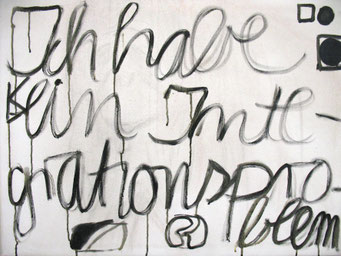 Ich habe
kein Inte-
grationspro-
bleem